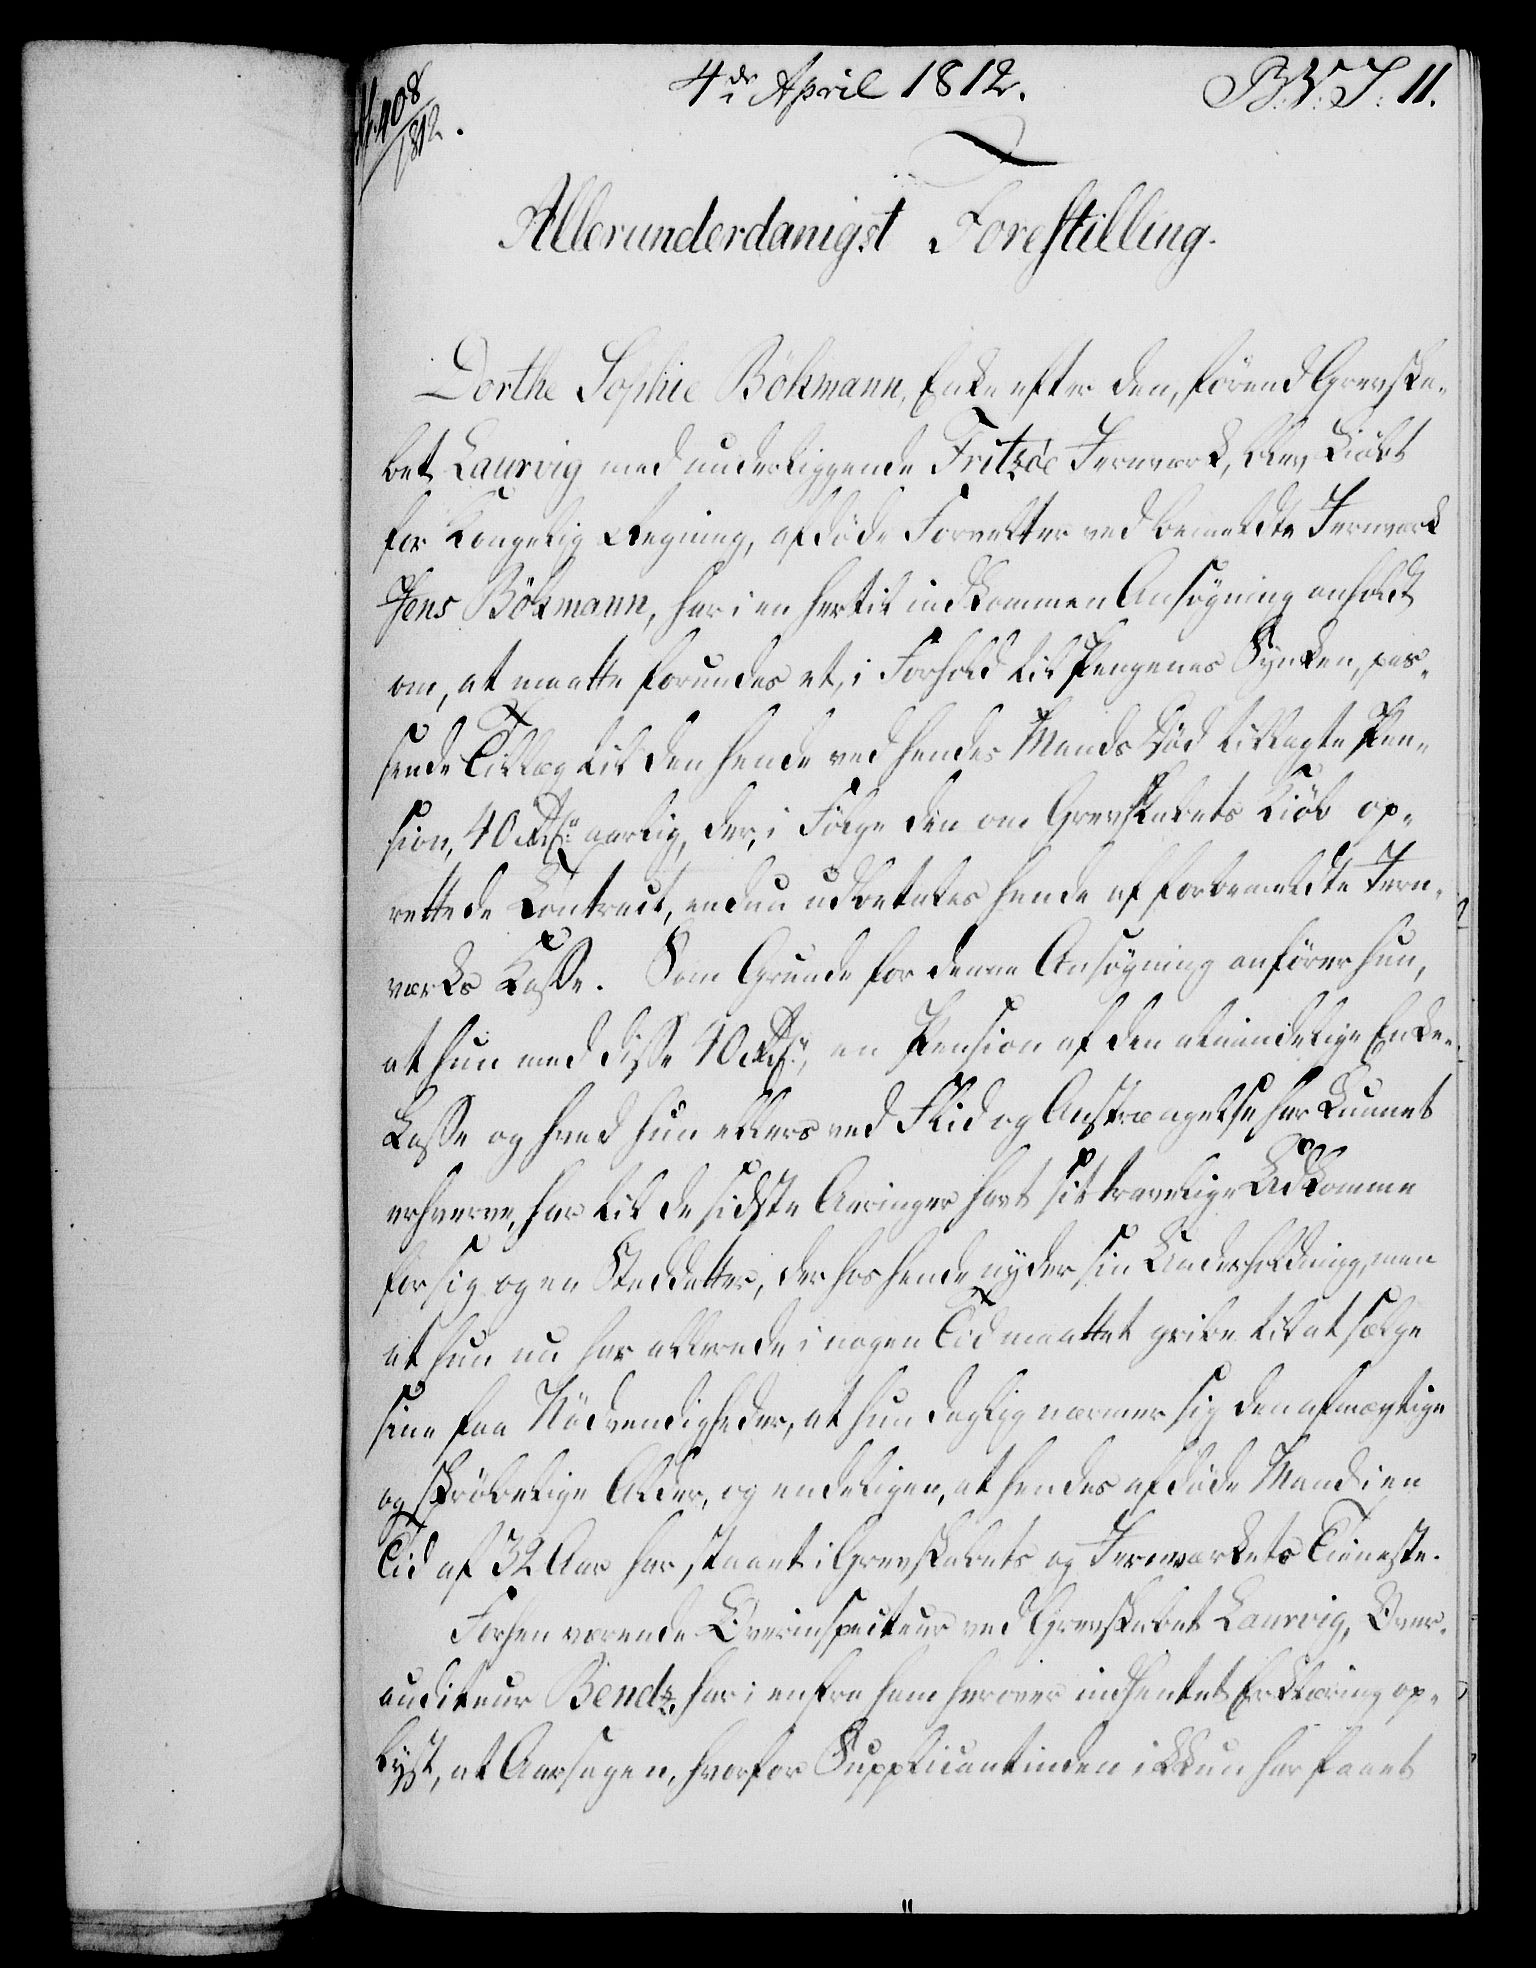 408/1812.
4de April 1812.
B: V: J: 11.
Allerunderdanigst Forestilling.
Dorthe Sophie Bökmann, Enke efter den, förend Grevska-
bet Laurvig med underliggende Fritzöe Jernværk, blev kiöbt
for Kongelig Regning, afdöde Forvalter ved bemeldte Jernværk
Jens Bökmann, har i en hertil indkommen Ansögning anholdt
om, at maatte forundes et, i Forhold til Pengenes Synken, pas-
sende Tillæg til den hende ved hendes Mands Död tillagte Pen-
sion, 40 Rdlr aarlig, der, i Fölge den om Grevskabets Kiöb op-
rettede Contract, endnu udbetales hende af forbemeldte Jern-
værks Kasse. Som Grunde for denne Ansögning anförer hun,
at hun med disse 40 Rdlr, en Pension af den almindelige Enke-
Kasse og hvad hun ellers ved Flid og Anstrængelse har kunnet
erhverve, har til de sidste Aaringer havt sit tarvelige Udkomme
for sig og en Steddatter, der hos hende nyder sin Underholdning, men
at hun nu har allerede i nogen Tid maattet gribe til at sælge
sine faa Nödvendigheder, at hun daglig nærmer sig den afmægtige
og skröbelige Alder, og endeligen, at hendes afdöde Mand i en
Tid af 32 Aar har staaet i Grevskabets og Jernværkets Tieneste.
Forhen værende Overinspecteur ved Grevskabet Laurvig, Over-
auditeur Bendz, har i en fra ham herover indhentet Erklæring op-
lyst, at Aarsagen, hvorfor Supplicantinden ikkun har faaet